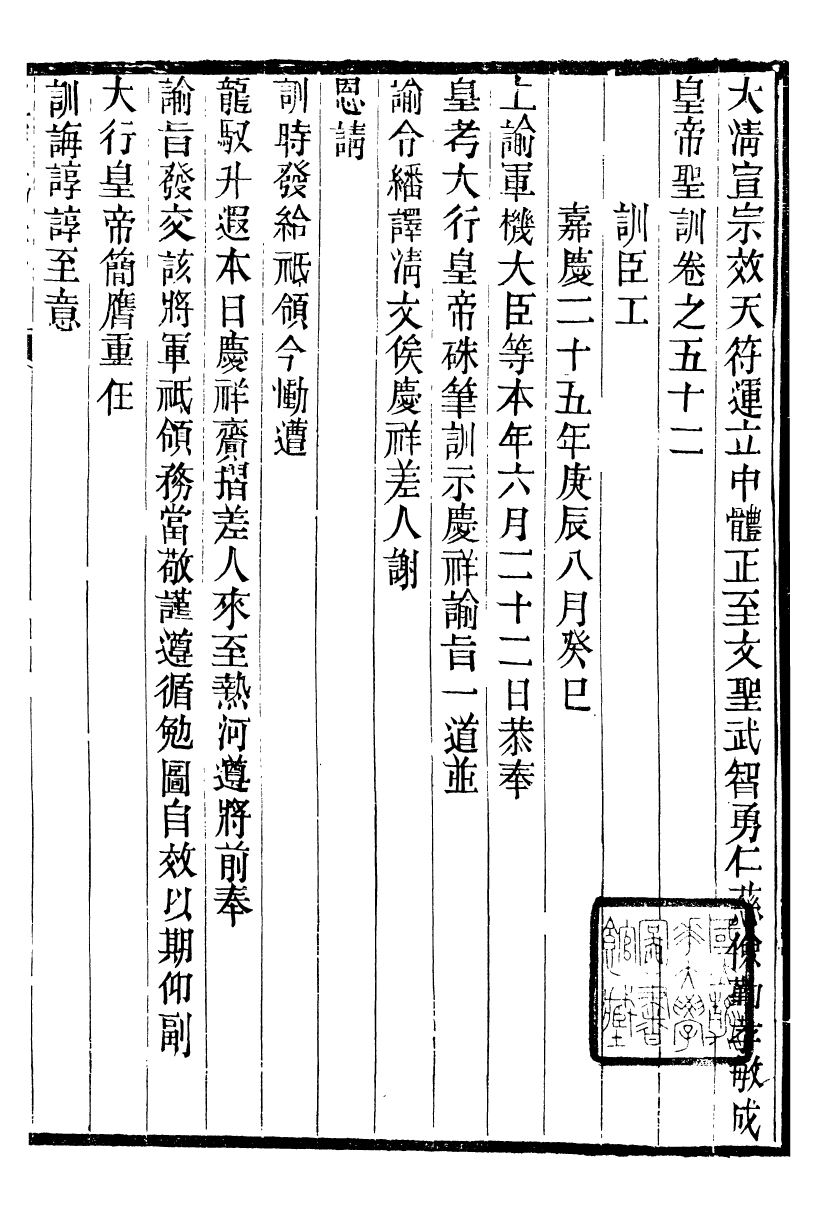 大清宣宗效天符運立中體正至文聖武智勇仁慈儉勤孝敏成
皇帝聖訓卷之五十二
訓臣工
嘉慶二十五年庚辰八月癸巳
上諭軍機大臣等本年六月二十二日恭奉
皇考大行皇帝硃筆訓示慶祥諭旨一道並
諭令繙譯清文俟慶祥差人謝
恩請
訓時發給祇領今慟遭
龍馭升遐本日慶祥齎摺差人來至熱河遵將前奉
諭旨發交該將軍祇領務當敬謹遵循勉圖自效以期仰副
大行皇帝簡膺重任
訓誨諄諄至意
國立北
平大學
圖書
館藏